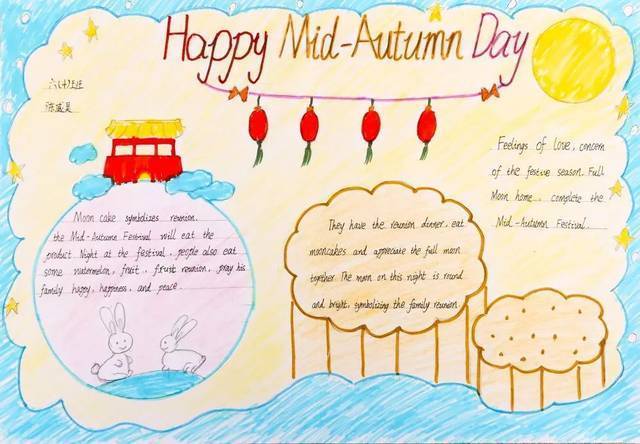 Happy Mid-Autumn Day
Feelings of love, concern
of the festive season. Full
Moon home, complete the
Mid-Autumn Festival.
Moon cake symbolizes reunion.
the Mid-Autumn Festival will eat the
product Night at the festival, people also eat
some watermelon, fruit, fruit reunion, pray his
family happy, happiness, and peace.
They have the reunion dinner, eat
mooncakes and appreciate the full moon
together. The moon on this night is round
and bright, symbolizing the family reunion.